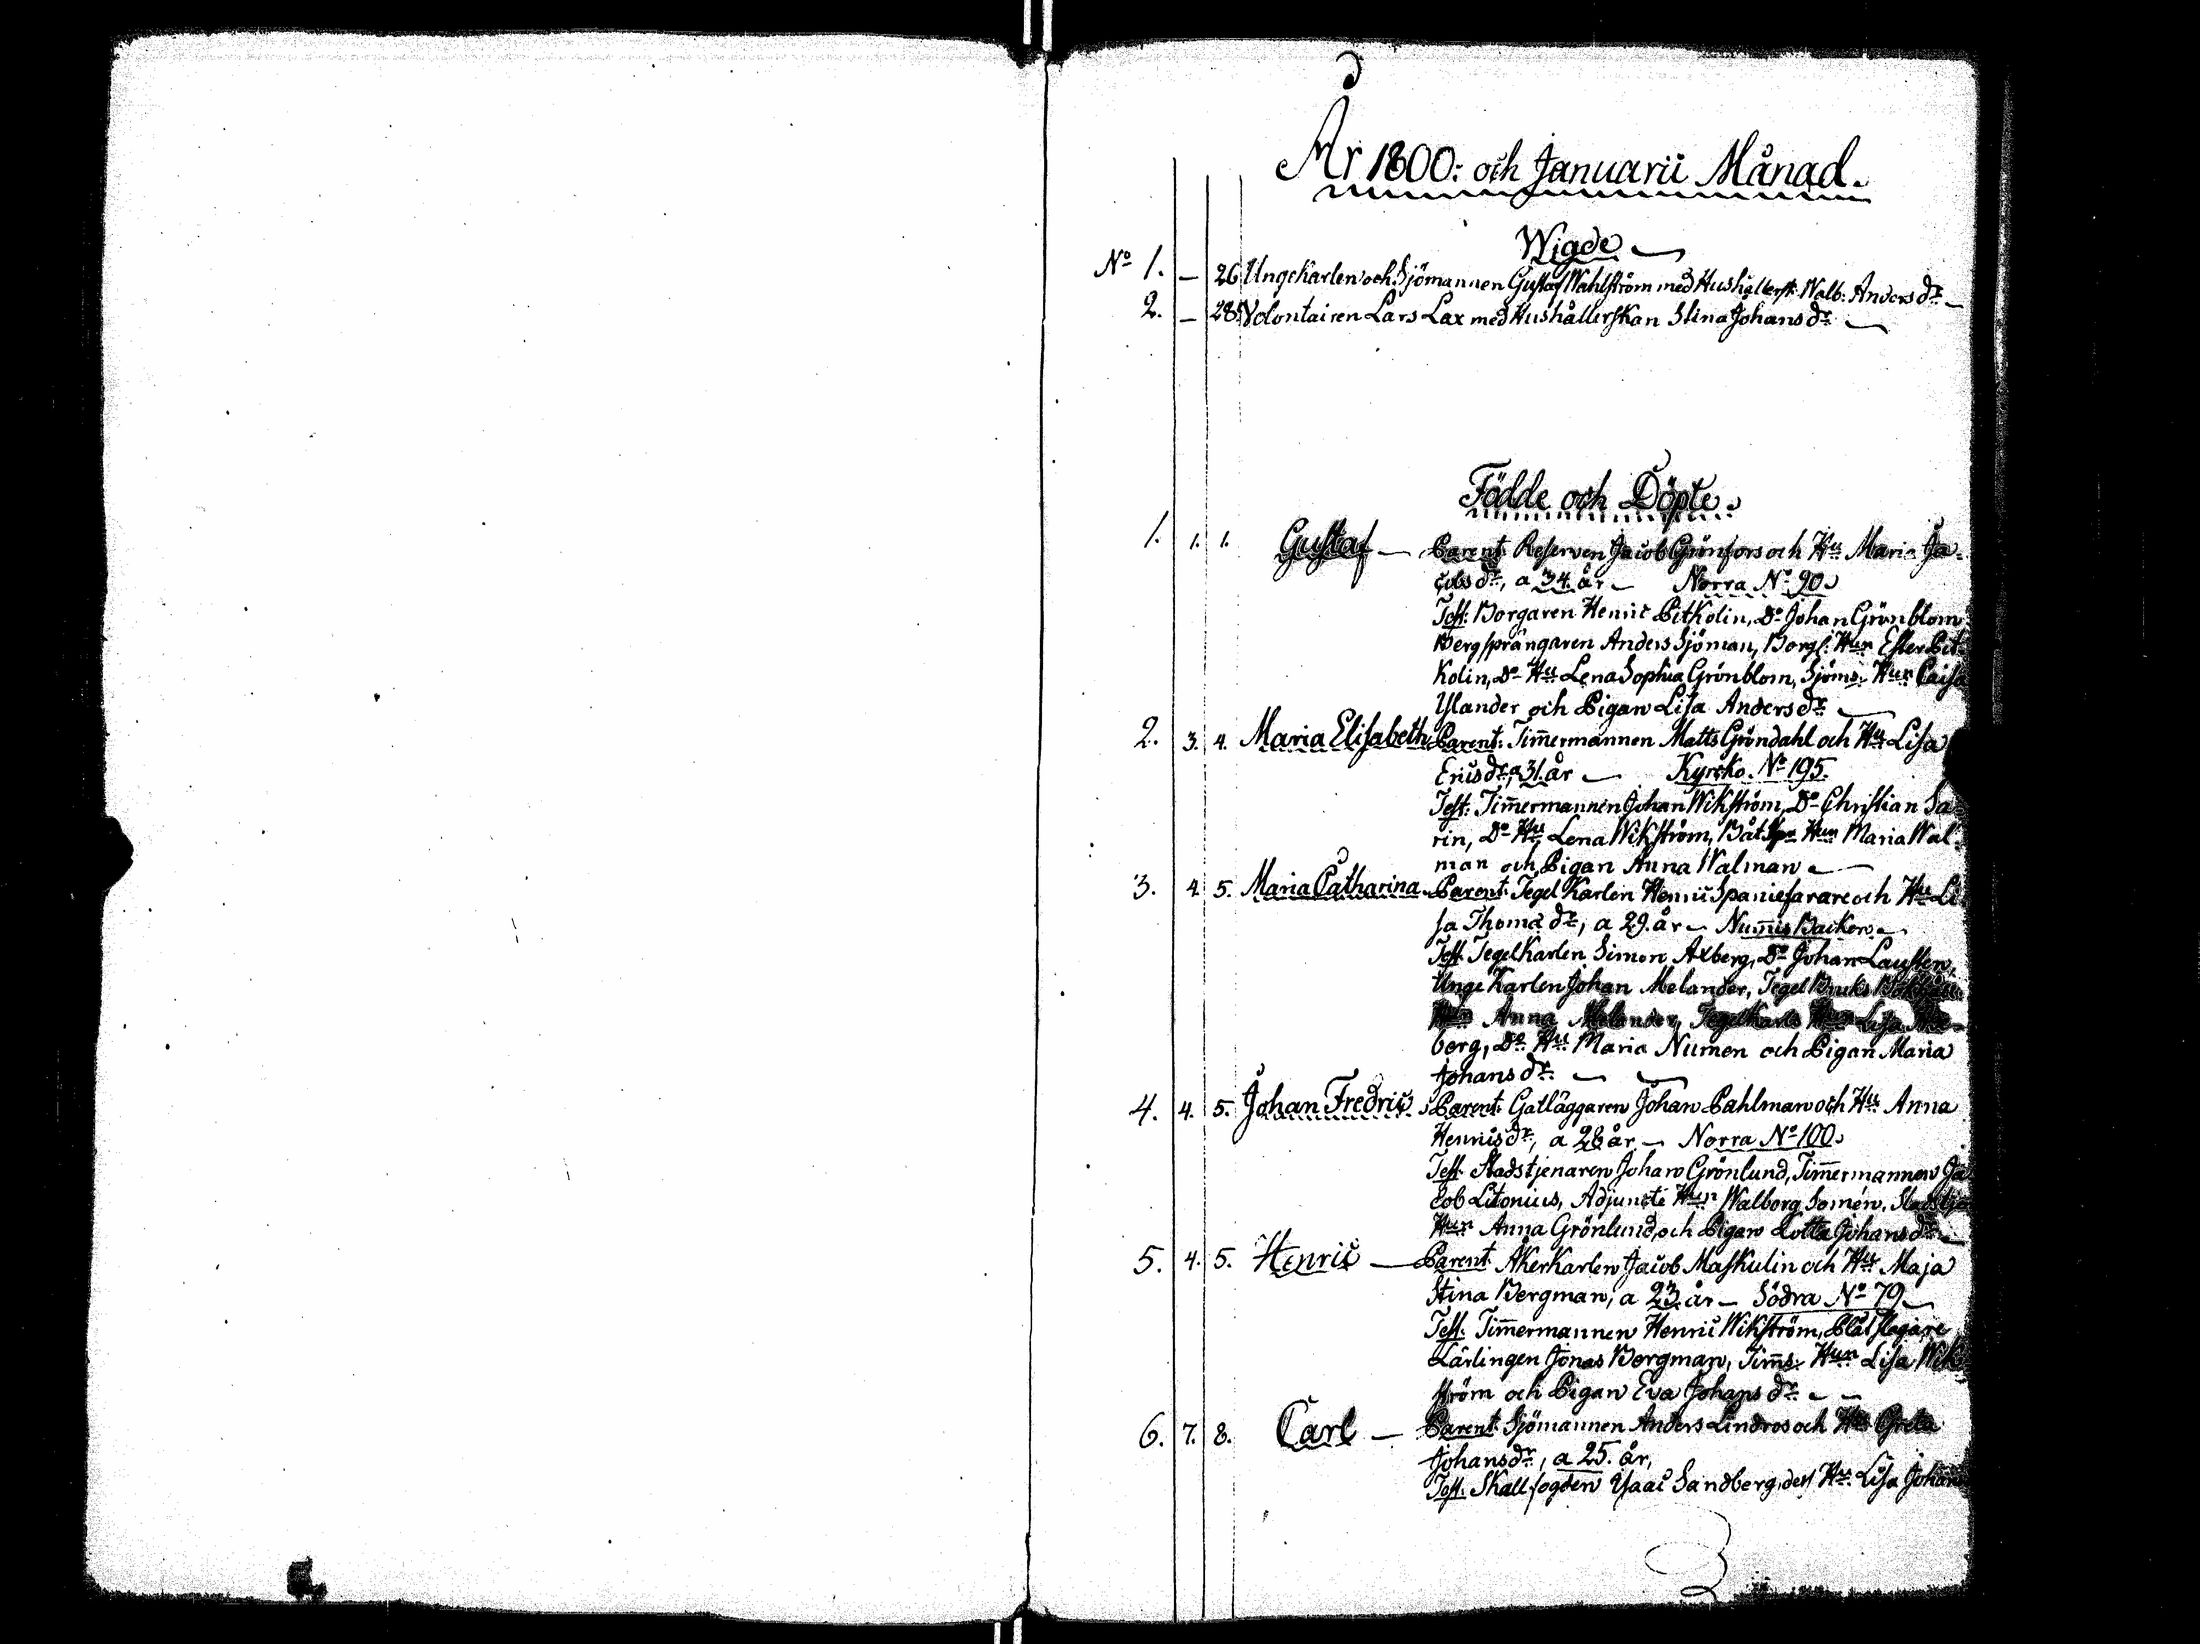 År 1800: och Januarii Månad.
Wigde
No 1. – 26 Ungekarlen och Sjömannen Gustaf Wahlström med Hushållersk: Walb: Anders dr
2. – 28. Volontairen Lars Lax med Hushållerskan Stina Johans dr
Födde och Döpte.
1. 1. 1. Gustaf – Parent: Reserven Jacob Grönfors och Hu Maria Ja-
cobs dr, a 34. år – Norra No 90.
Test: Borgaren Henric Pitkolin, Do Johan Grönblom,
Bergsprängaren Anders Sjöman, Borg: Hun Ester Pit-
kolin, Do Hu Lena Sophia Grönblom, Sjöms: Hun Caisa
Ylander och Pigan Lisa Anders dr
2. 3. 4. Maria Elisabeth. Parent: Tim̄ermannen Matts Gröndahl och Hu Lisa
Erics dr, a 31. år – Kyrko. No 195.
Test: Tim̄ermannen Johan Wikström, Do Christian Sa-
rin, Do Hu Lena Wikström, Båts Hun Maria Wal-
man och Pigan Anna Walman
3. 4. 5. Maria Catharina. Parent: Tegel Karlen Henric Spaniefarare och Hu Li-
sa Thomæ dr, a 29. år – Num̄is Backen
Test: Tegelkarlen Simon Axberg, Do Johan Lausten,
Unge Karlen Johan Melander, Tegel Bruks
Hun Anna Melander, Tegelkarls Hun Lisa Ax-
berg, Do Hu Maria Numen och Pigan Maria
Johans dr
4. 4. 5. Johan Fredric. Parent: Gatläggaren Johan Pahlman och Hu Anna
Henrics dr, a 28 år – Norra No 100.
Test: Stadstjenaren Johan Grönlund, Tim̄ermannen Ja-
cob Litonius, Adjuncte Hun Walborg Somén, Stadstje
Hun Anna Grönlund, och Pigan Lotta Johans dr
5. 4. 5. Henric – Parent: Åkerkarlen Jacob Maskulin och Hu Maja
Stina Bergman, a 23. år – Södra No 79
Test: Tim̄ermannen Henric Wikström, Plåtslagare
Lärlingen Jonas Bergman, Tim̄s: Hun Lisa Wik-
ström och Pigan Eva Johans dr
6. 7. 8. Carl – Parent: Sjömannen Anders Lindros och Hu Greta
Johans dr, a 25. år,
Test: Skallfogden Ysaac Sandberg, dess Hu Lisa Johans